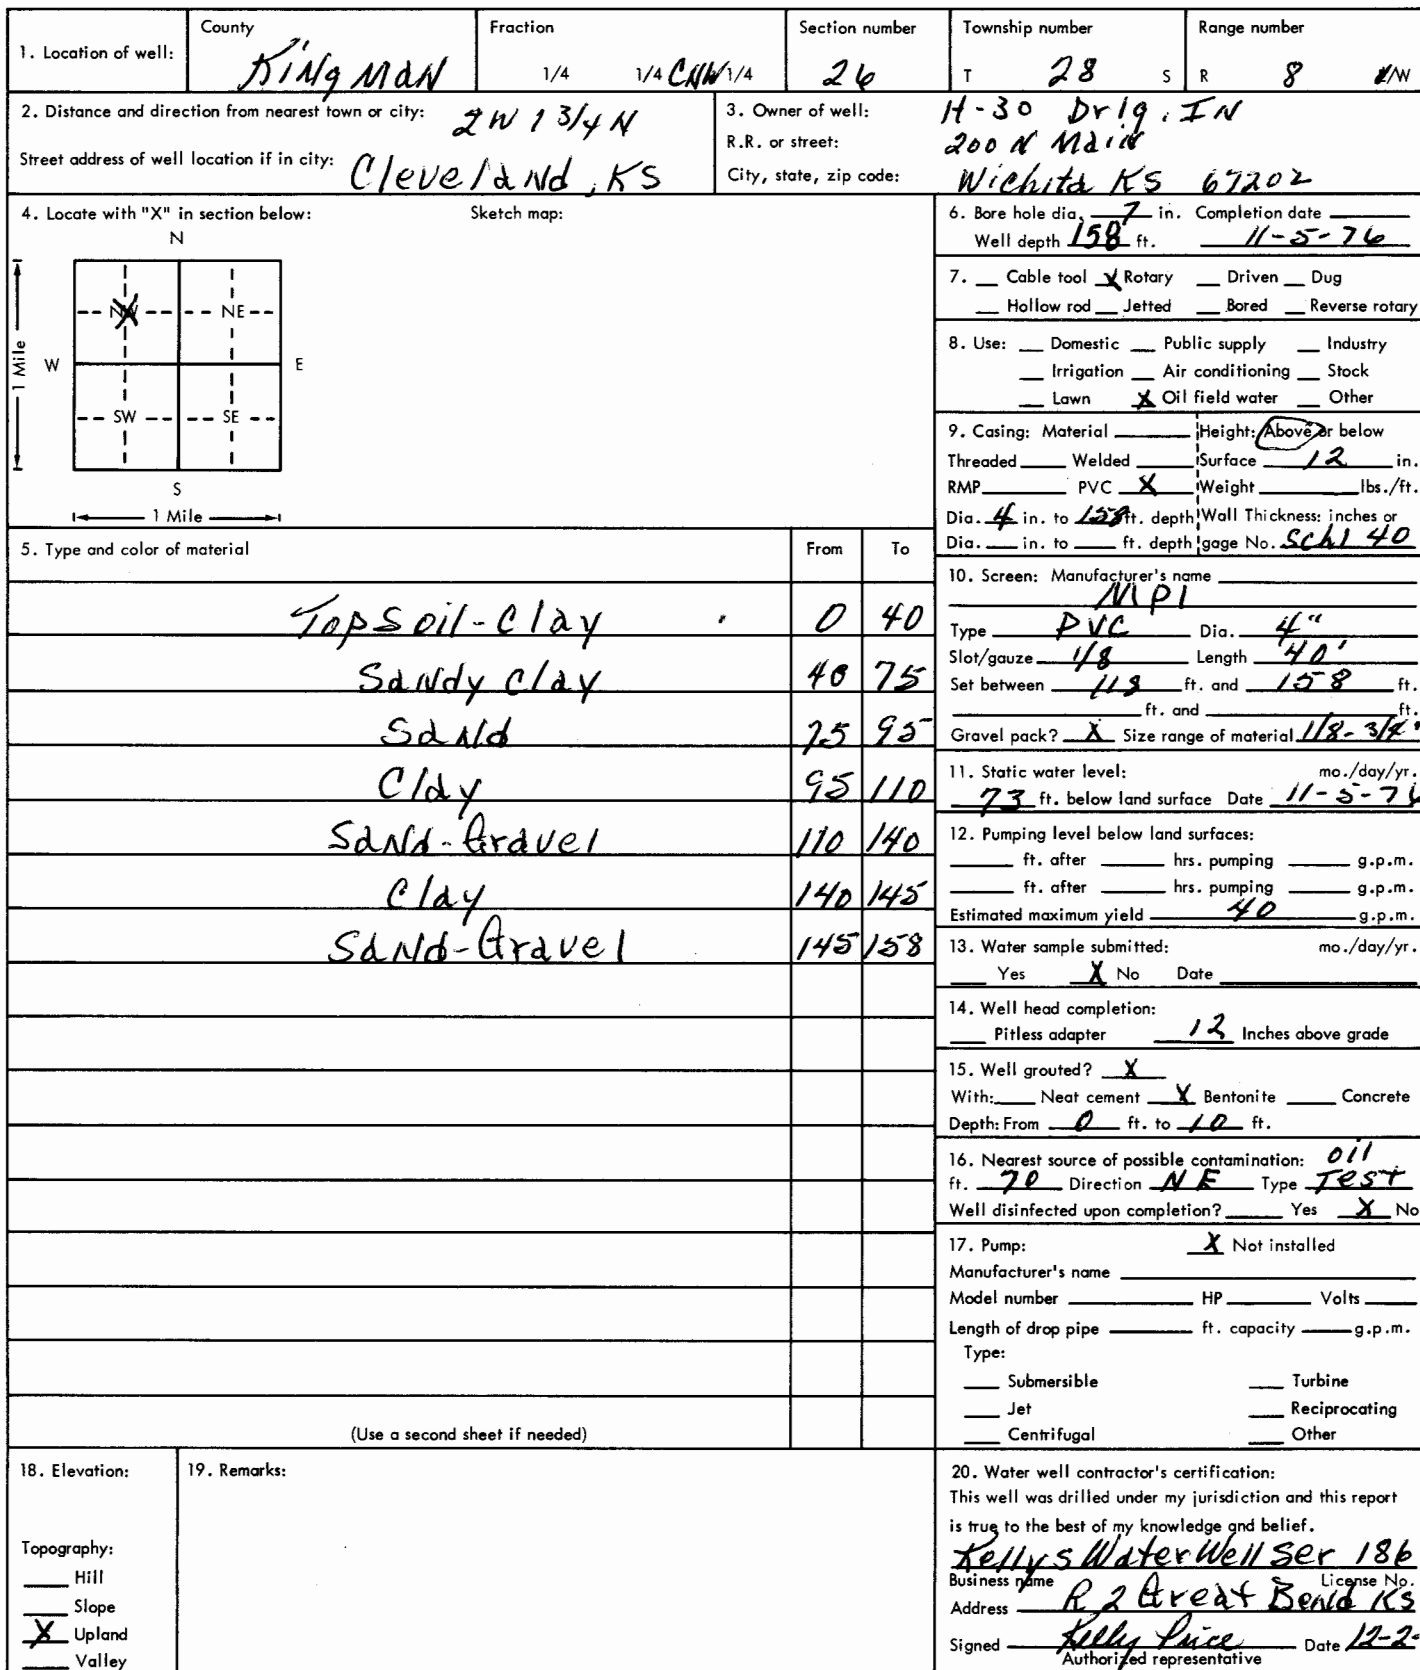 1. Location of well:
County
Kingman
Fraction
1/4 1/4 CNW 1/4
Section number
26
Township number
T 28 S
Range number
R 8 E/W
2. Distance and direction from nearest town or city: 2W 1 3/4 N
Street address of well location if in city: Cleveland, KS
3. Owner of well: H-30 Drlg. IN
R.R. or street: 200 N Main
City, state, zip code: Wichita KS 67202
4. Locate with "X" in section below: Sketch map:
N
NW NE
W E
1 Mile
SW SE
S
1 Mile
5. Type and color of material From To
Topsoil-Clay 0 40
Sandy Clay 40 75
Sand 75 95
Clay 95 110
Sand-Gravel 110 140
Clay 140 145
Sand-Gravel 145 158
(Use a second sheet if needed)
6. Bore hole dia. 7 in. Completion date
Well depth 158 ft. 11-5-76
7. Cable tool X Rotary Driven Dug
Hollow rod Jetted Bored Reverse rotary
8. Use: Domestic Public supply Industry
Irrigation Air conditioning Stock
Lawn X Oil field water Other
9. Casing: Material Height: Above or below
Threaded Welded Surface 12 in.
RMP PVC X Weight lbs./ft.
Dia. 4 in. to 158 ft. depth Wall Thickness: inches or
Dia. in. to ft. depth gage No. Schl 40
10. Screen: Manufacturer's name
MPI
Type PVC Dia. 4"
Slot/gauze 1/8 Length 40'
Set between 118 ft. and 158 ft.
ft. and ft.
Gravel pack? X Size range of material 1/8-3/4"
11. Static water level: mo./day/yr.
73 ft. below land surface Date 11-5-76
12. Pumping level below land surfaces:
ft. after hrs. pumping g.p.m.
ft. after hrs. pumping g.p.m.
Estimated maximum yield 40 g.p.m.
13. Water sample submitted: mo./day/yr.
Yes X No Date
14. Well head completion:
Pitless adapter 12 Inches above grade
15. Well grouted? X
With: Neat cement X Bentonite Concrete
Depth: From 0 ft. to 10 ft.
16. Nearest source of possible contamination: oil
ft. 70 Direction NE Type Test
Well disinfected upon completion? Yes X No
17. Pump: X Not installed
Manufacturer's name
Model number HP Volts
Length of drop pipe ft. capacity g.p.m.
Type:
Submersible Turbine
Jet Reciprocating
Centrifugal Other
18. Elevation:
Topography:
Hill
Slope
X Upland
Valley
19. Remarks:
20. Water well contractor's certification:
This well was drilled under my jurisdiction and this report
is true to the best of my knowledge and belief.
Kellys Water Well Ser 186
Business name License No.
Address R 2 Great Bend KS
Signed Kelly Price Date 12-2-
Authorized representative